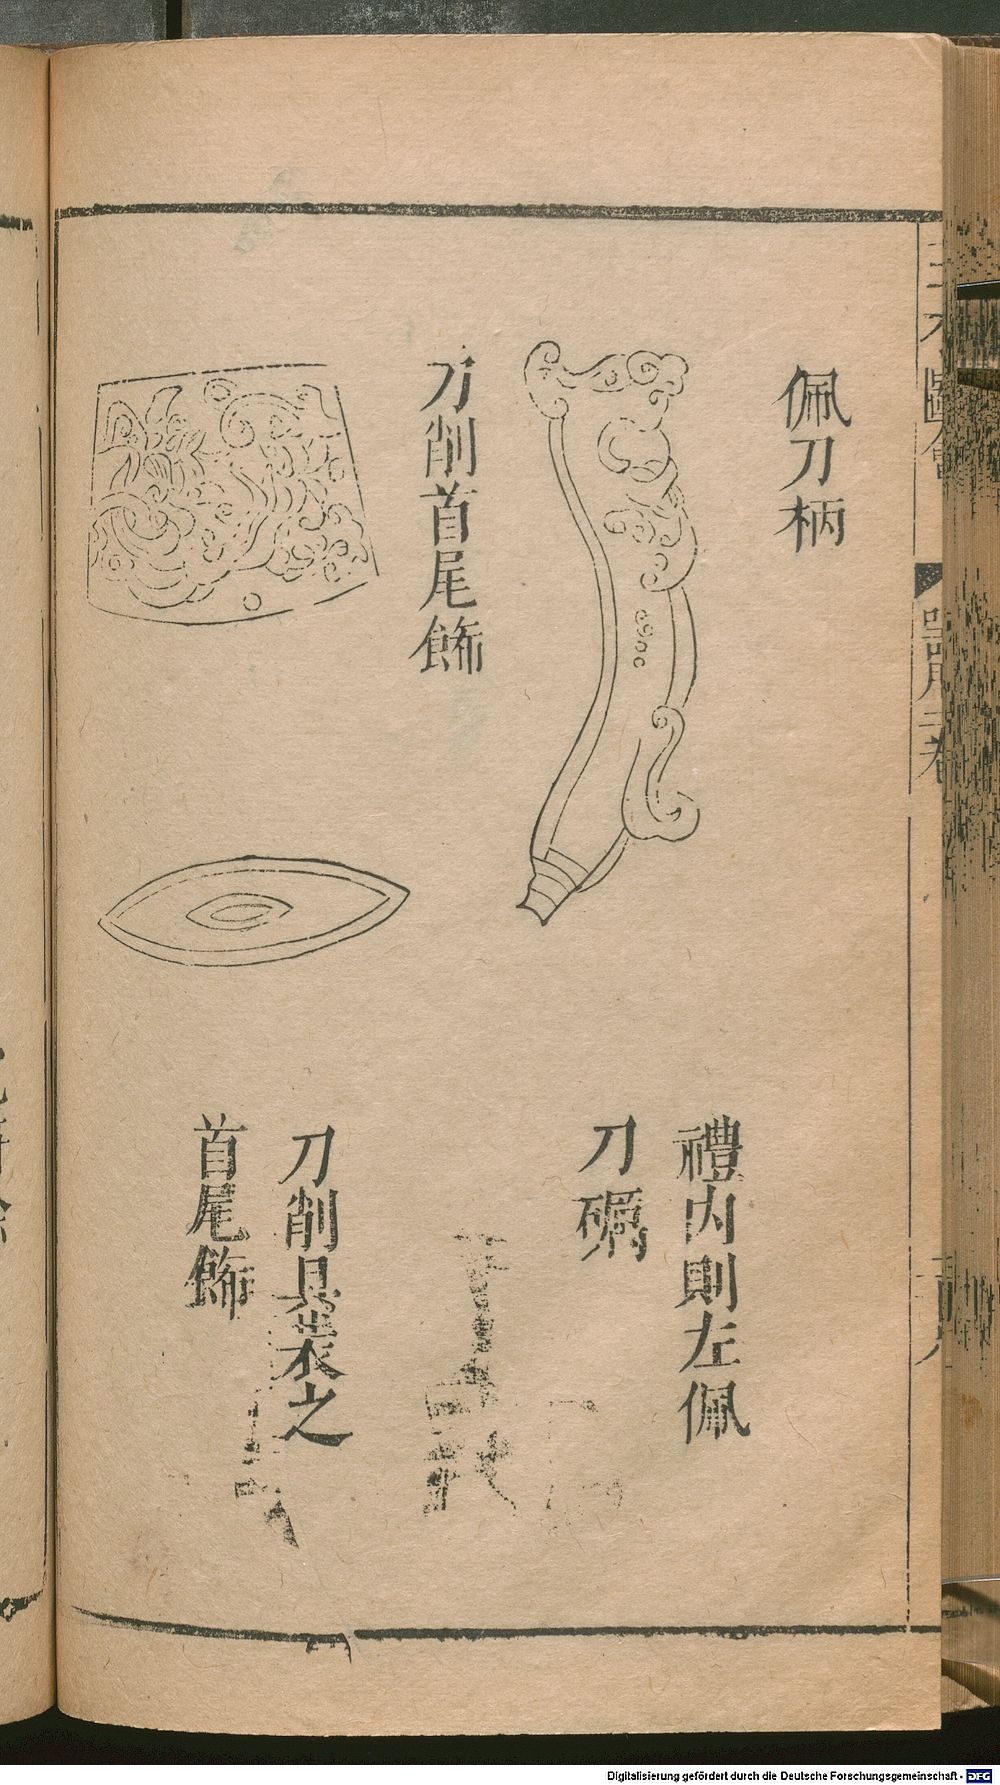 佩刀柄
刀削首尾飾
禮內則左佩
刀礪
刀削具裝之
首尾飾
器用二卷
Digitalisierung gefördert durch die Deutsche Forschungsgemeinschaft - DFG